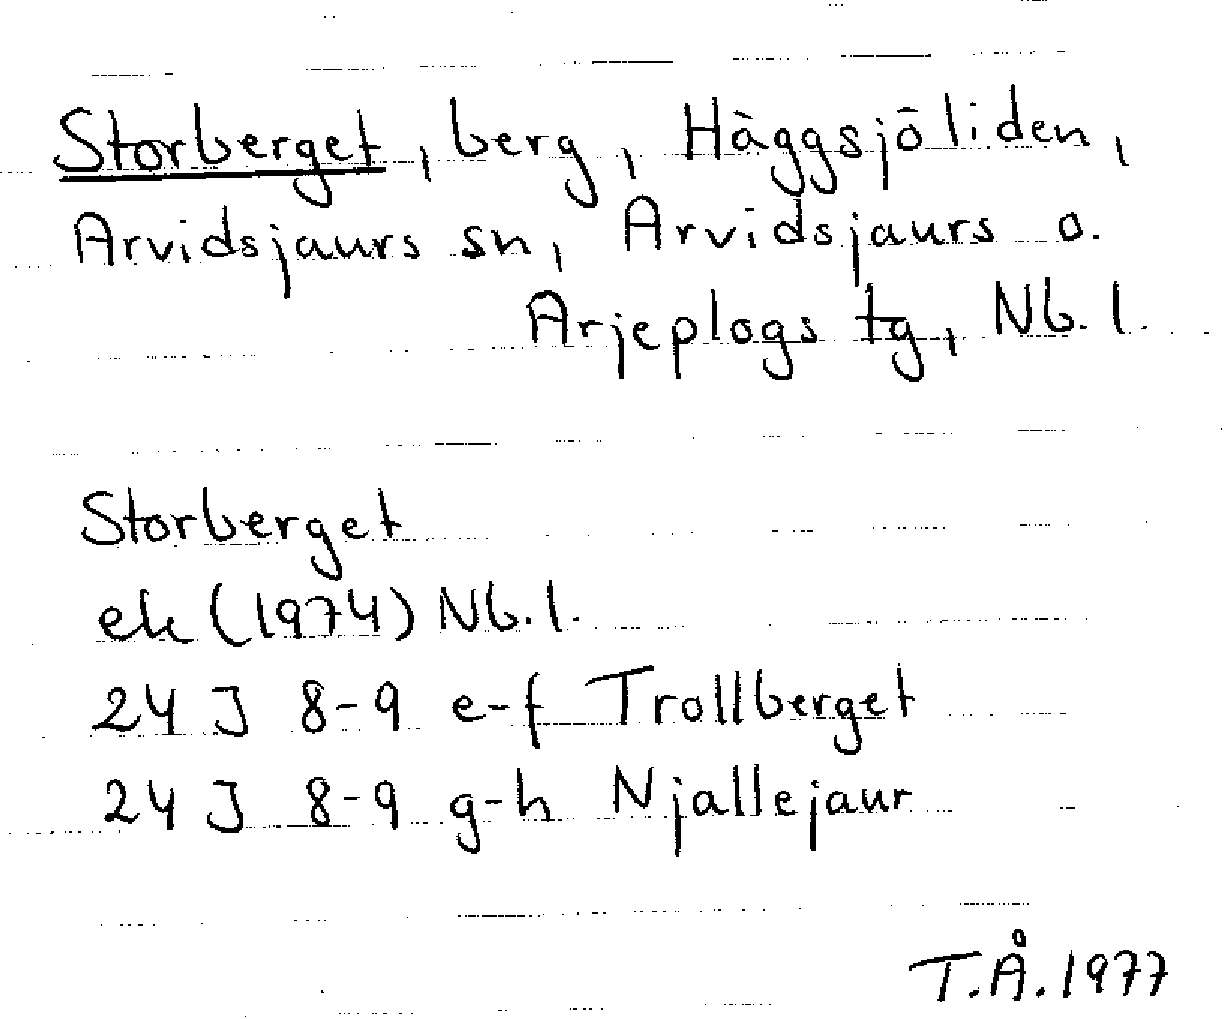 Storberget, berg, Häggsjöliden,
Arvidsjaurs sn, Arvidsjaurs o.
Arjeplogs tg, Nb. l.
Storberget
ek (1974) Nb. l.
24 J 8-9 e-f Trollberget
24 J 8-9 g-h Njallejaur
T.Å. 1977